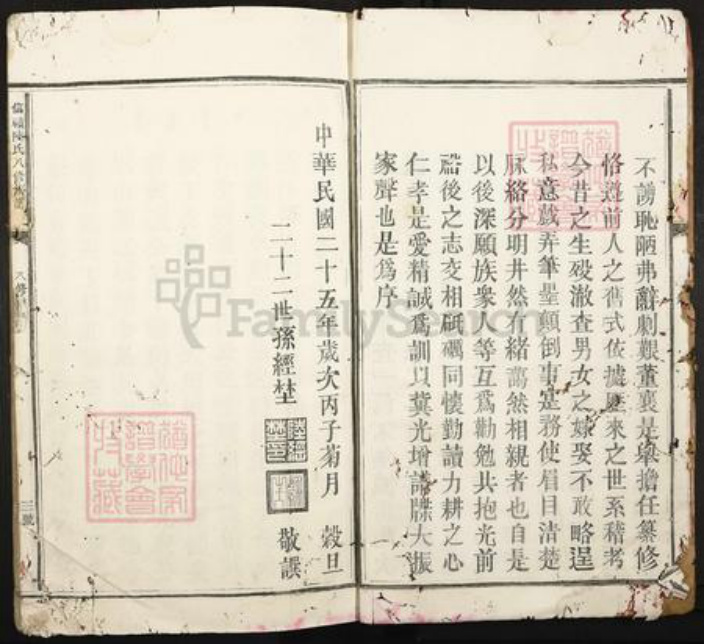 不謗恥陋弗辭劇艱董襄是舉擔任纂修
恪遵前人之舊式依據歷來之世系稽考
今昔之生歿澈查男女之嫁娶不敢略逞
私意戲弄筆墨顛倒事寔務使眉目清楚
脉絡分明井然有緒藹然相親者也自是
以後深願族衆人等互爲勸勉共抱光前
裕後之志交相砥礪同懷勤讀力耕之心
仁孝是愛精誠爲訓以冀光增譜牒大振
家聲也是爲序
中華民國二十五年歲次丙子菊月 穀旦
二十二世孫經埜 敬譔
陳氏八修族譜
三號
猶他家
譜學會
收藏
FamilySearch